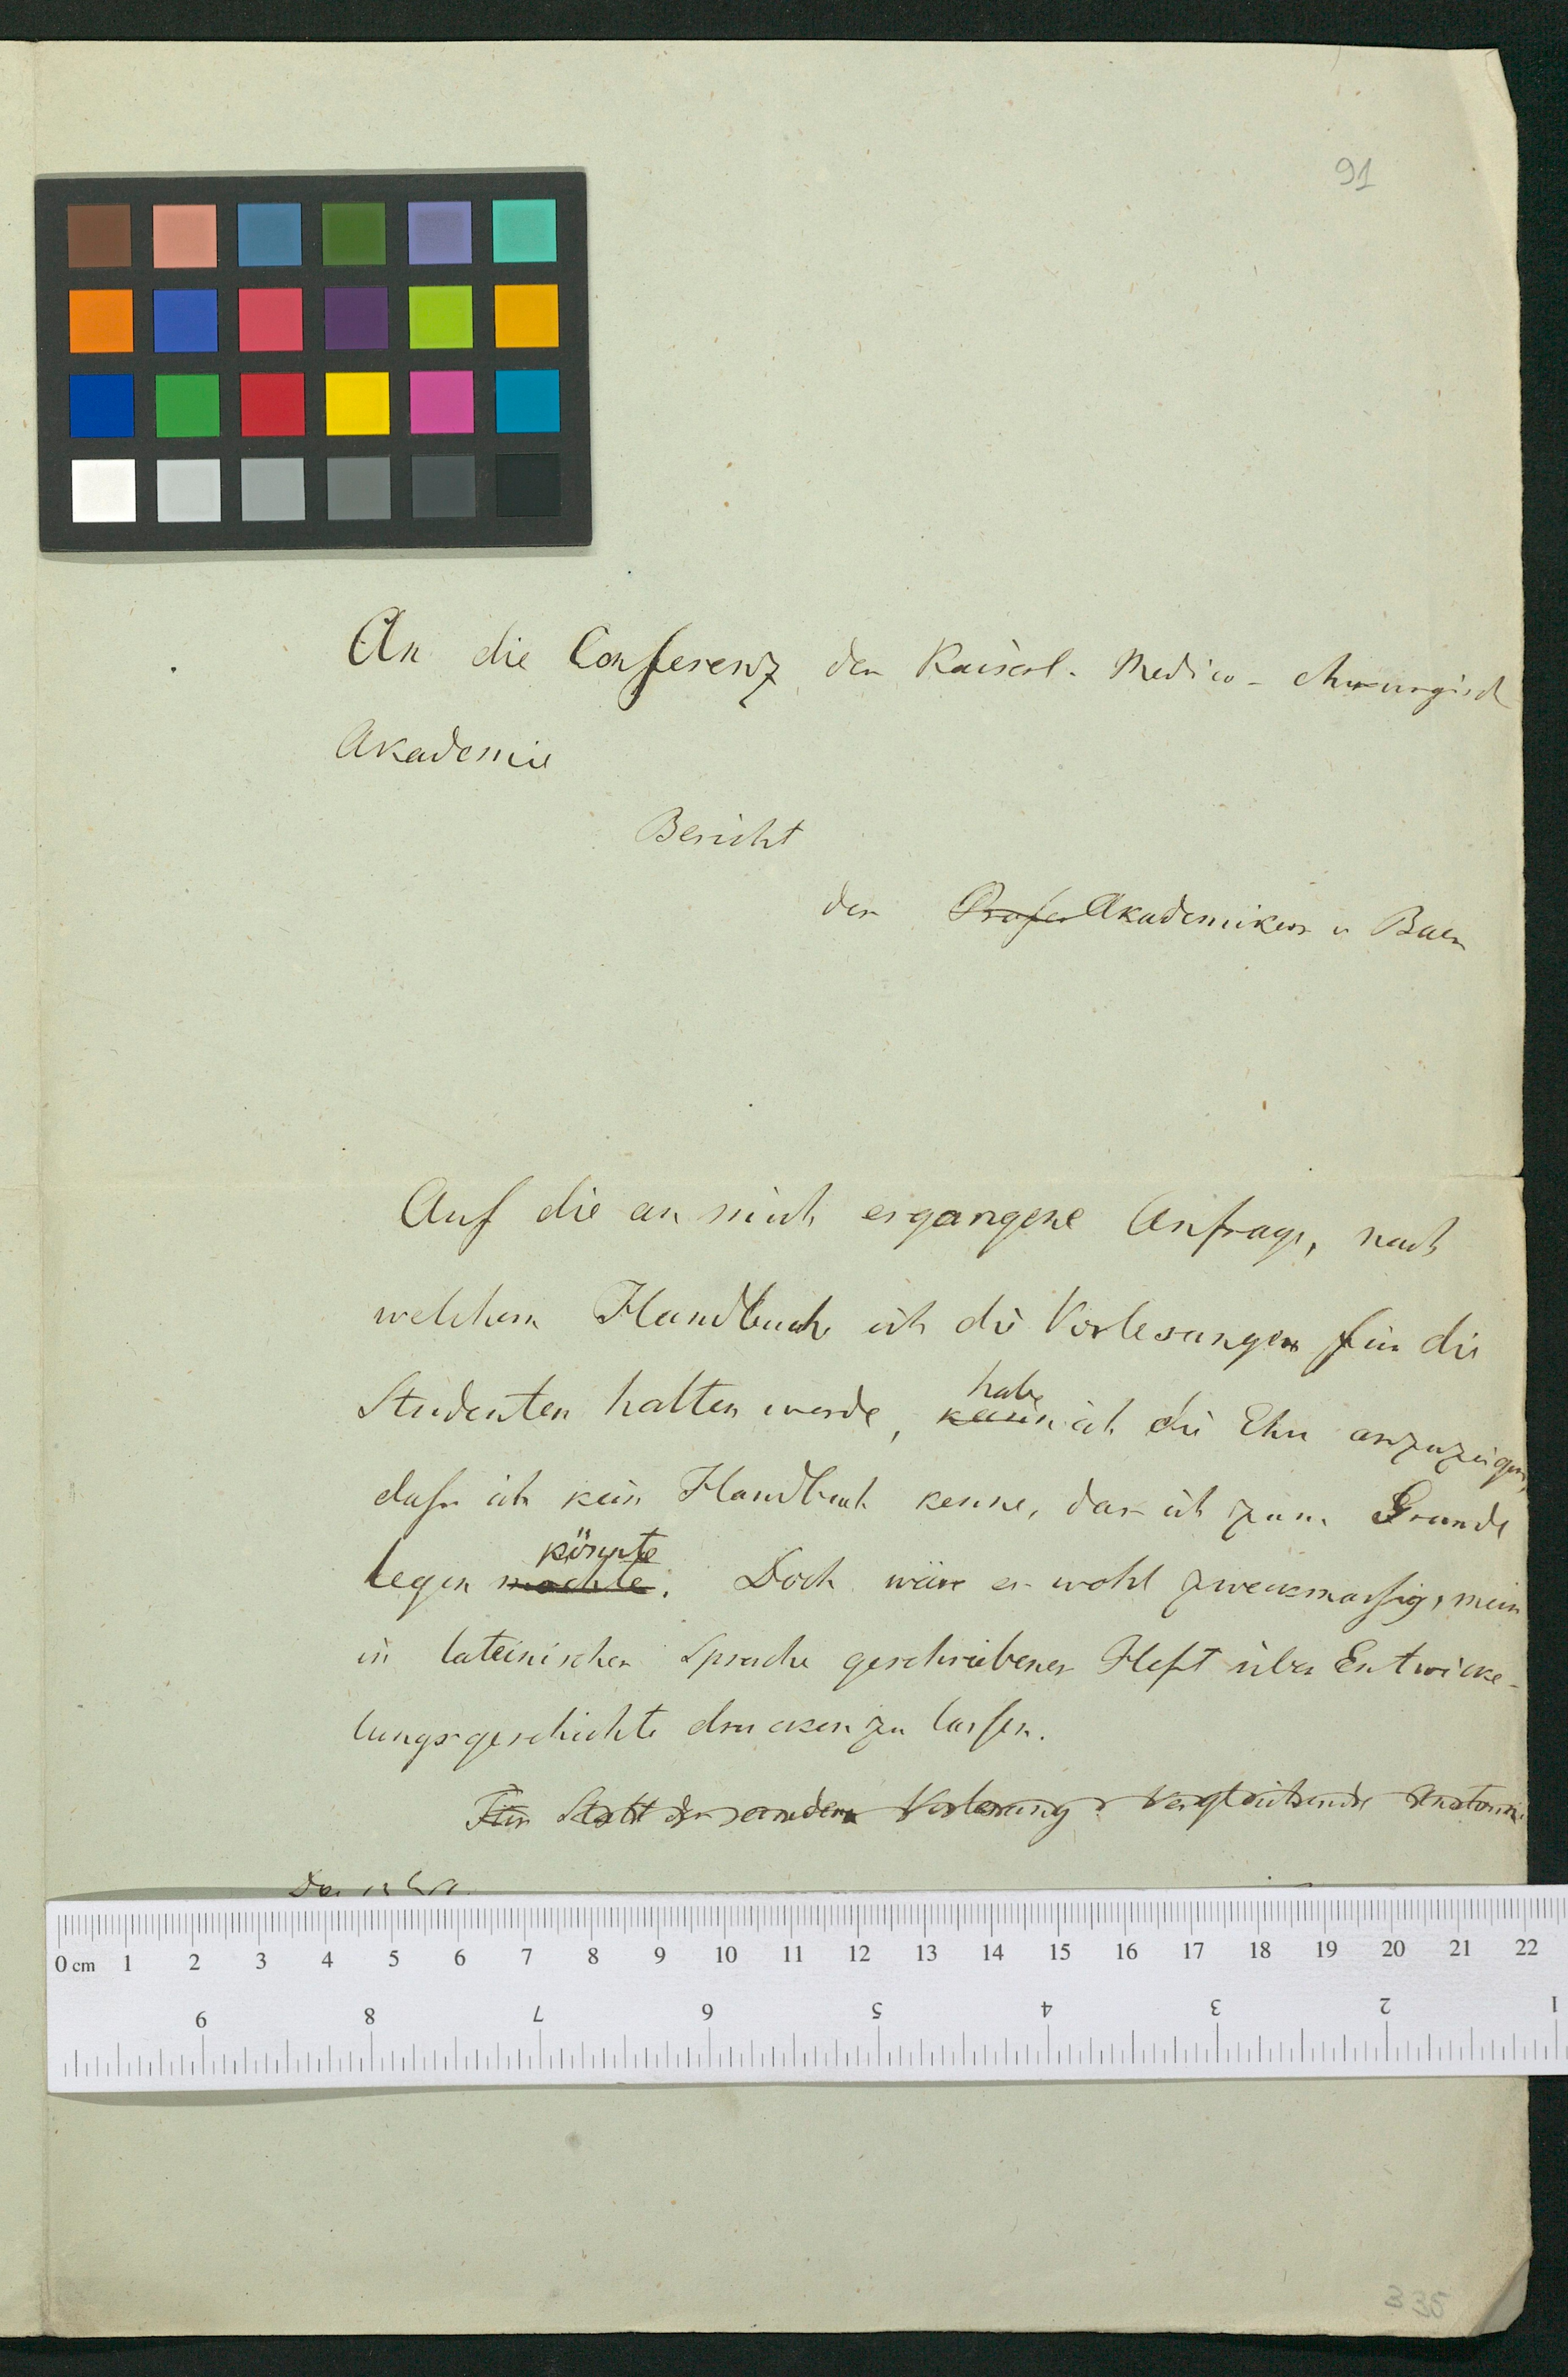 91
An die Conferenz der Kaiserl. Medico-chirurgisch
Akademie
Bericht
des Profes Akademikers v Baer
Auf die an mich ergangene Anfrage, nach
welchem Handbuche ich die Vorlesungen für die
habe
Studenten halten werde, kann ich die Ehre anzuzeigen,
dass ich kein Handbuch kenne, das ich zum Grunde
könnte
legen mochte. Doch wäre es wohl zweckmassig, mein
in lateinischer Sprache geschriebenes Heft über Entwicke-
lungsgeschichte drucken zu lassen.
Für Statt der andern Vorlesung vergleichende Anatomie
0 cm 1 2 3 4 5 6 7 8 9 10 11 12 13 14 15 16 17 18 19 20 21 22
9 8 7 6 5 4 3 2 1
335